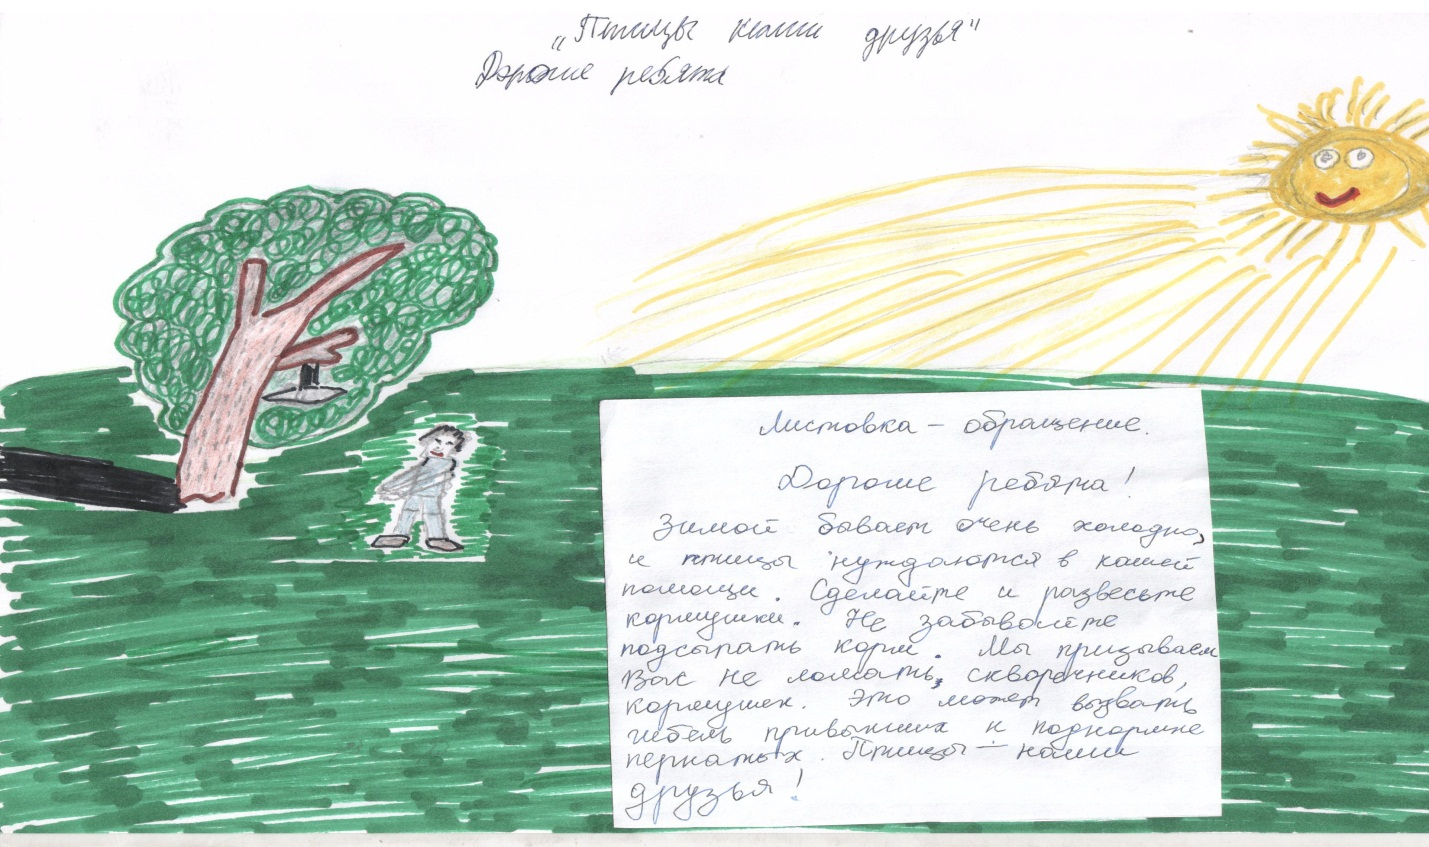 „Птицы наши друзья"
Дорогие ребята
Листовка - обращение.
Дорогие ребята!
Зимой бывает очень холодно,
и птицы нуждаются в нашей
помощи. Сделайте и развесьте
кормушки. Не забывайте
подсыпать корм. Мы призываем
Вас не ломать, скворечников,
кормушек. Это может вызвать
гибель привыкших к подкормке
пернатых. Птицы - наши
друзья!